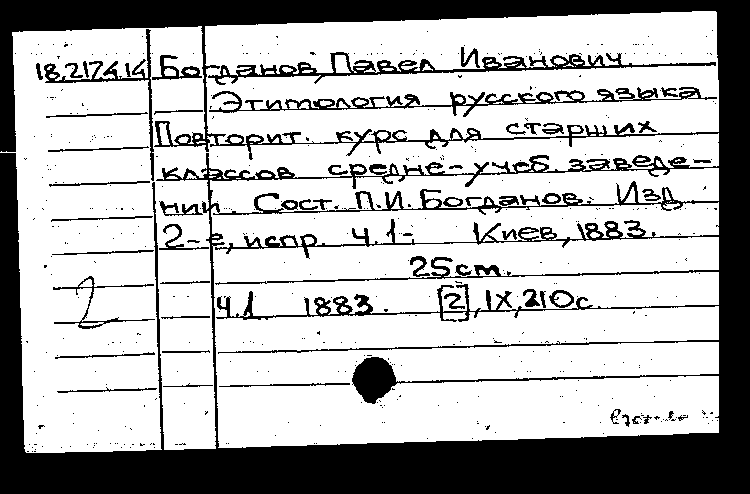 18.217.4.14 Богданов, Павел Иванович.
Этимология русского языка
Повторит. курс для старших
классов средне-учеб. заведе-
ний. Сост. П.И. Богданов. Изд.
2-е, испр. Ч.1-. Киев, 1883.
25 см.
2 Ч.1 1883. [2], IX, 210с.